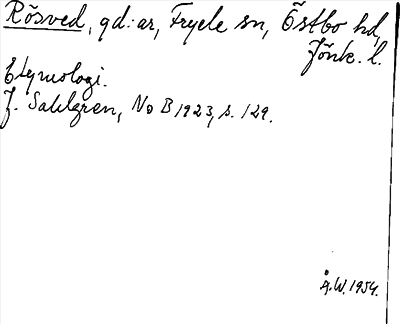 Rösved, gd:ar, Fryele sn, Östbo hd,
Jönk. l.
Etymologi.
J. Sahlgren, No B 1923, s. 129.
Å.W. 1954.